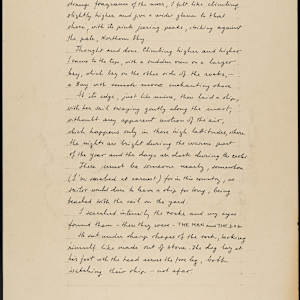 strange fragrance of the rivers, I felt like climbing
slightly higher and give a wider glance to that
shore, with its pink jutting peaks, sticking against
the pale, Northern Sky
Thought and done. Climbing higher and higher
I came to the top, with a sudden view on a larger
bay, which lay on the other side of the rocks, —
a Bay with smooth mirror enchanting shore.
At its edge, just like mine, there laid a ship,
with her sail swaying gently along the mast,
without any apparent motion of the air,
which happens only in these high latitudes, where
the nights are bright during the warm part
of the year and the days are dark during the
There must be someone nearby, somewhere
(I'm smashed at earnest) for in this country, no
sailor would dare to leave a ship for long, being
beached with the sail on the yard.
I searched intensely the rocks and my eyes
found them — there they were — THE MAN and THE DOG
He sat under sharp shapes of the rock, looking
himself like made out of stone. The dog lay at
his feet with the head across the fore leg, both
watching their ship — not afar.